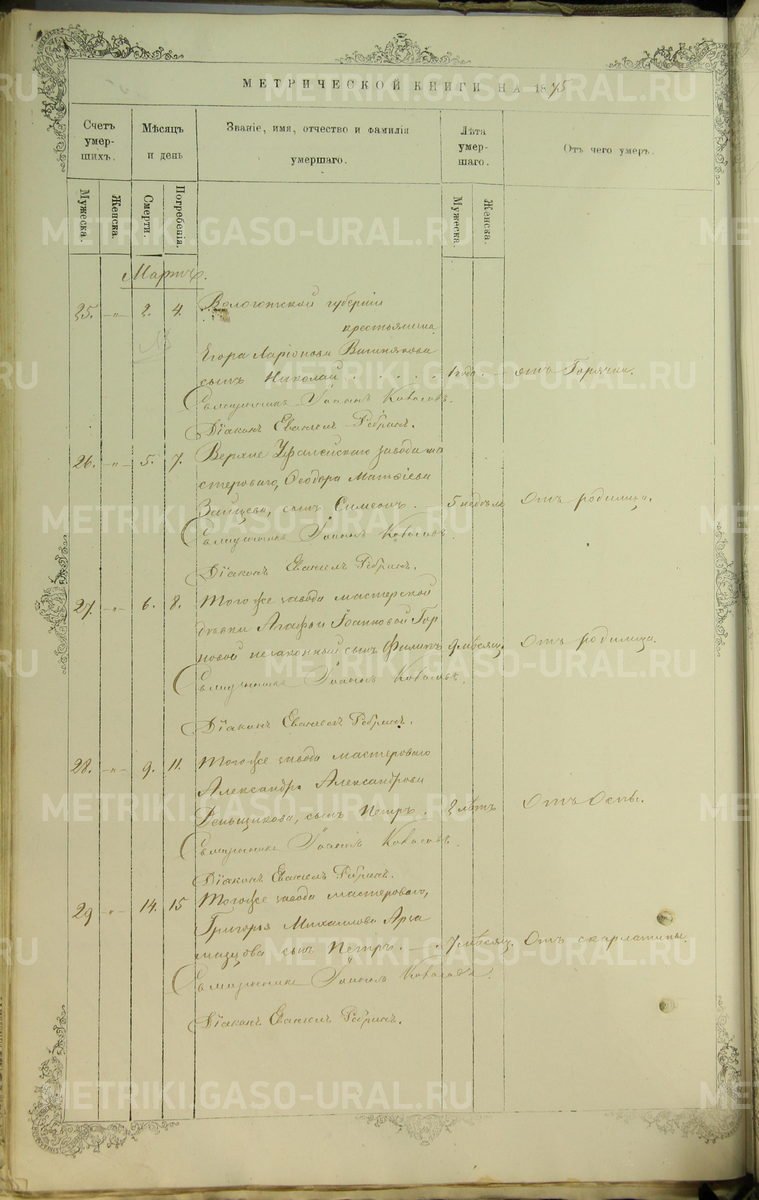 МЕТРИЧЕСКОЙ КНИГИ НА 1875
Счетъ умер-шихъ.
Мѣсяцъ и день
Званіе, имя, отчество и фамилія умершаго.
Лѣта умер-шаго.
Отъ чего умеръ.
Мужеска.
Женска.
Смерти.
Погребенія.
Мужеска.
Женска.
Мартъ.
25. -„- 2. 4. Вологотской губерніи
крестьянина
Егора Ларіонова Вишнякова
сынъ Николай . . . . . 1 года. - отъ Горячки.
Священникъ Іоаннъ
Діаконъ Евангелъ Ребринъ.
26. -„- 5. 7. Верхне Уфалейскаго завода ма
стероваго, Ѳеодора Матѳіева
Зайцева, сынъ Симеонъ. - 5 недѣль Отъ родимца.
Священникъ Іоаннъ
Діаконъ Евангелъ Ребринъ.
27. -„- 6. 8. Тогоже завода мастерской
дѣвки Агафьи Іоанновой Гор
новой незаконный сынъ Филипъ 9 мѣсяц. Отъ родимца.
Священникъ Іоаннъ
Діаконъ Евангелъ Ребринъ.
28. -„- 9. 11. Тогоже завода мастероваго
Александра Александрова
Деньщикова, сынъ Петръ. 2 лѣтъ Отъ Оспы.
Священникъ Іоаннъ
Діаконъ Евангелъ Ребринъ.
29 -„- 14. 15 Тогоже завода мастероваго,
Григорья Михаилова Арза
мазцова сынъ Петръ. - 7 мѣсяц. Отъ скарлатины.
Священникъ Іоаннъ
Діаконъ Евангелъ Ребринъ.
METRIKI.GASO-URAL.RU